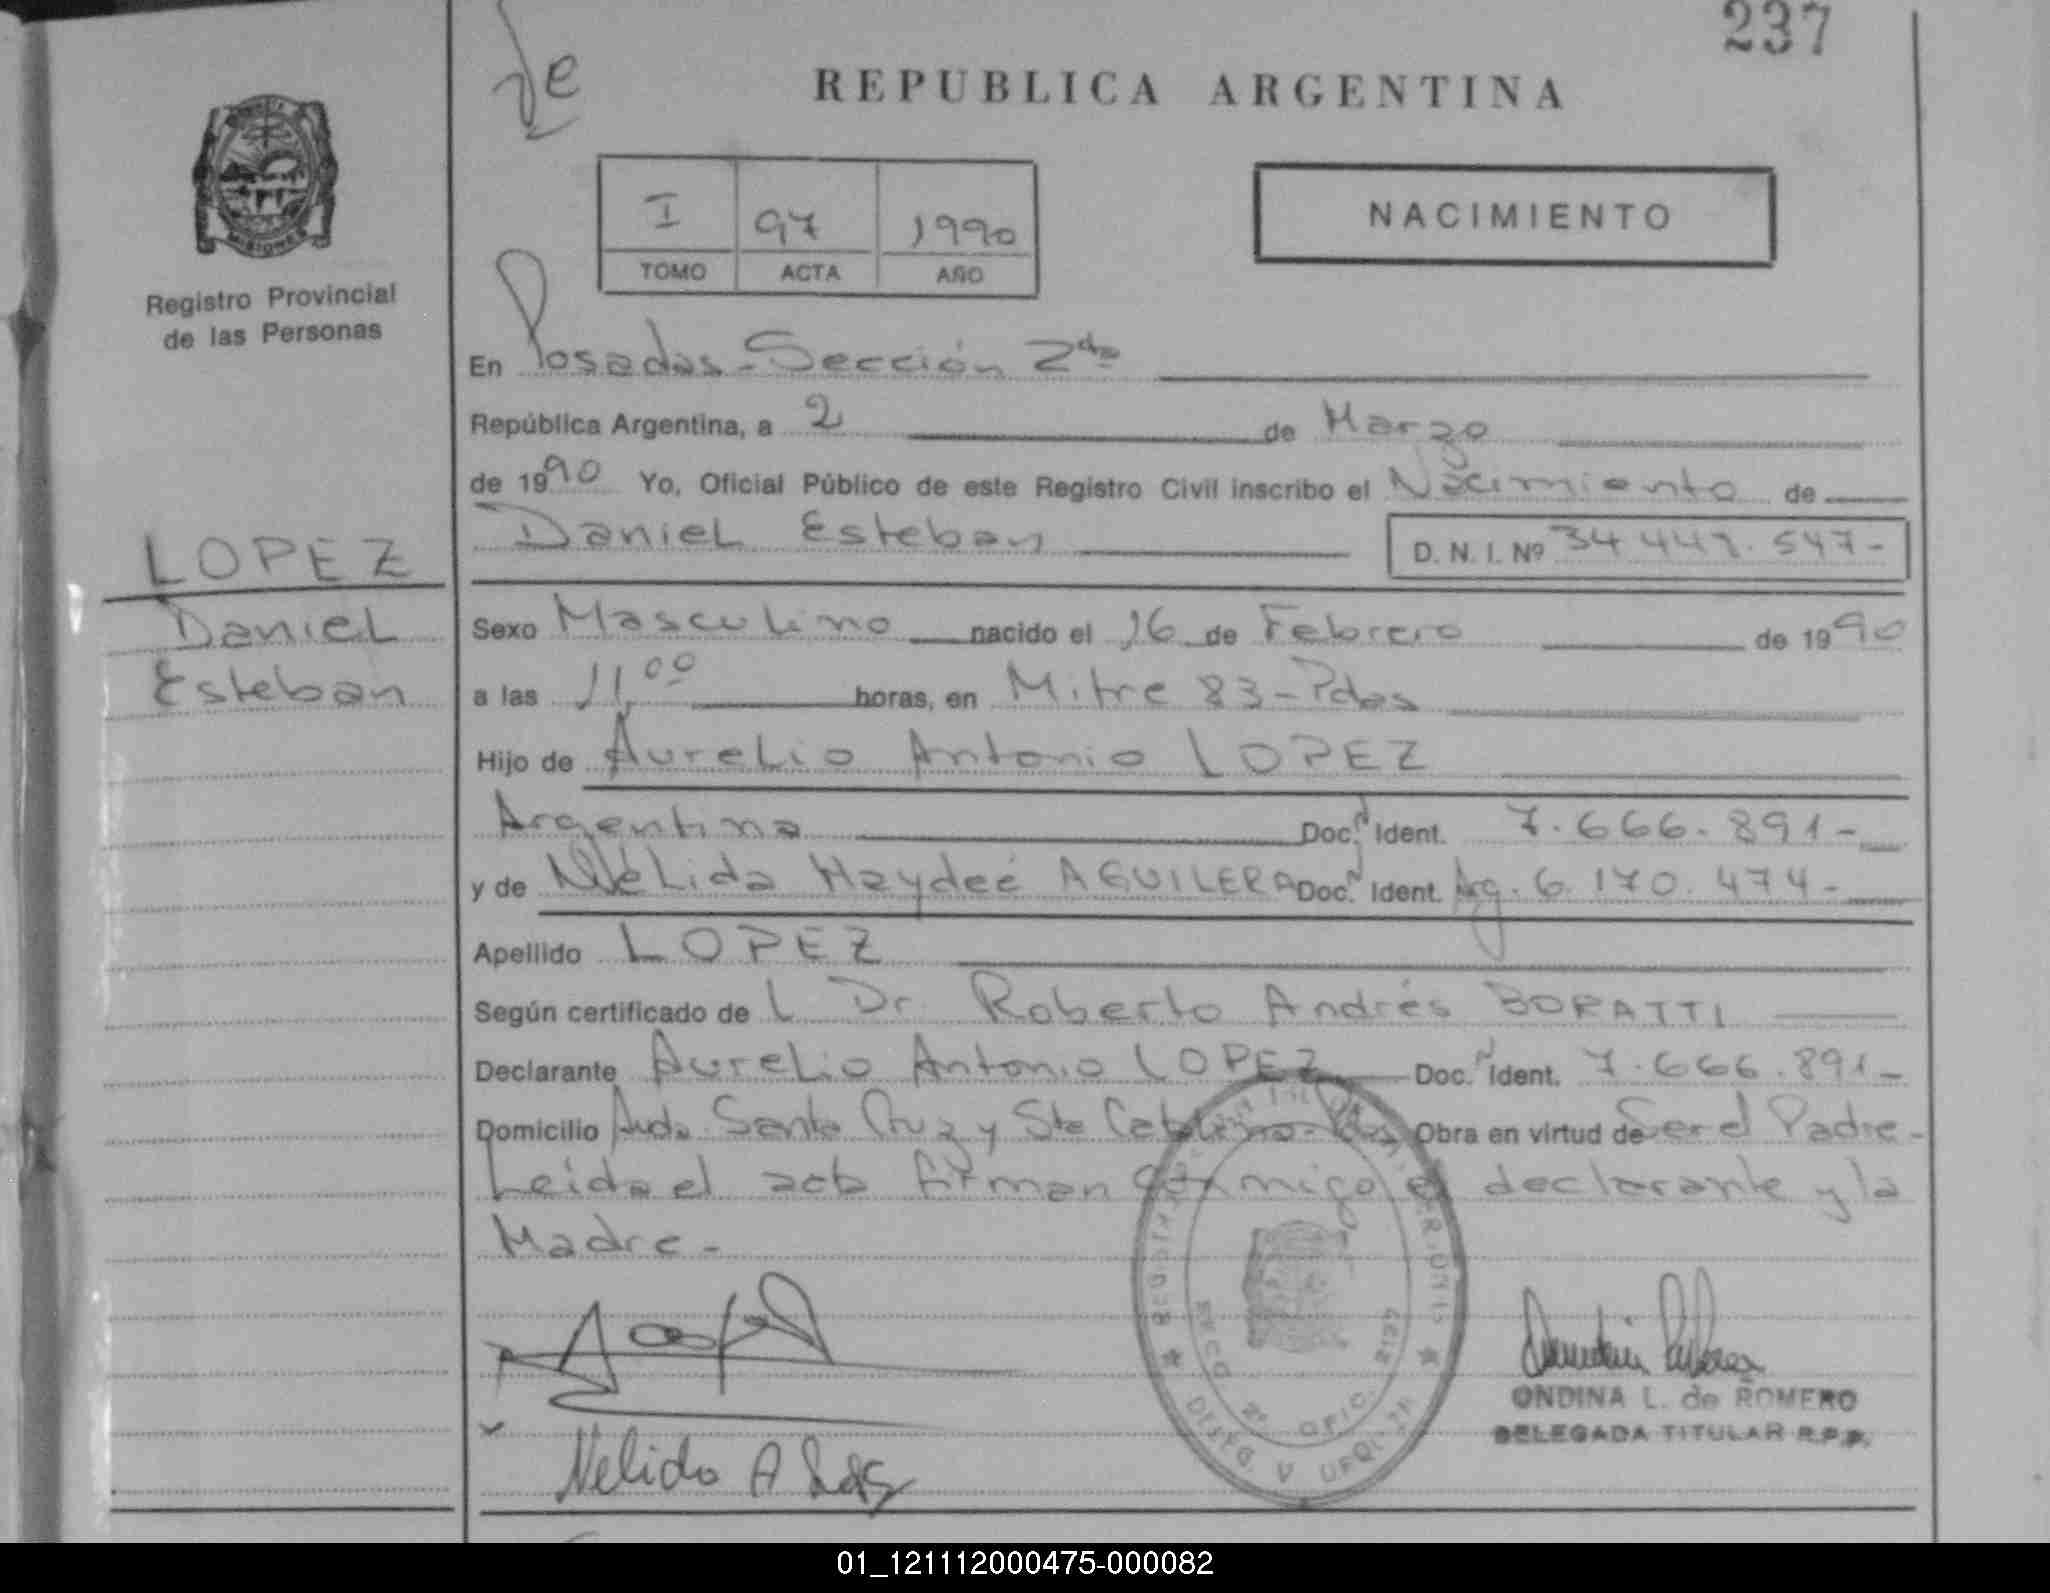 237
de
REPUBLICA ARGENTINA
I 97 1990
TOMO ACTA AÑO
NACIMIENTO
MISIONES
Registro Provincial
de las Personas
En Posadas - Sección 2da
República Argentina, a 2 de Marzo
de 1990 Yo, Oficial Público de este Registro Civil inscribo el Nacimiento de
Daniel Esteban D. N. I. Nº 34.447.547-
LOPEZ
Daniel
Esteban
Sexo Masculino nacido el 16 de Febrero de 1990
a las 11,00 horas, en Mitre 83 - Pdas
Hijo de Aurelio Antonio LOPEZ
Argentina Doc. N Ident. 7.666.891-
y de Nélida Haydeé AGUILERA Doc. N Ident. Arg. 6.170.474-
Apellido LOPEZ
Según certificado de L Dr. Roberto Andrés BORATTI
Declarante Aurelio Antonio LOPEZ Doc. N Ident. 7.666.891-
Domicilio Avda. Santa Cruz y Sta Catalina - Pdas Obra en virtud de Ser el Padre-
Leida el acta firman conmigo el declarante y la
Madre-
Nelida A
ONDINA L. de ROMERO
DELEGADA TITULAR R.P.P.
01_121112000475-000082